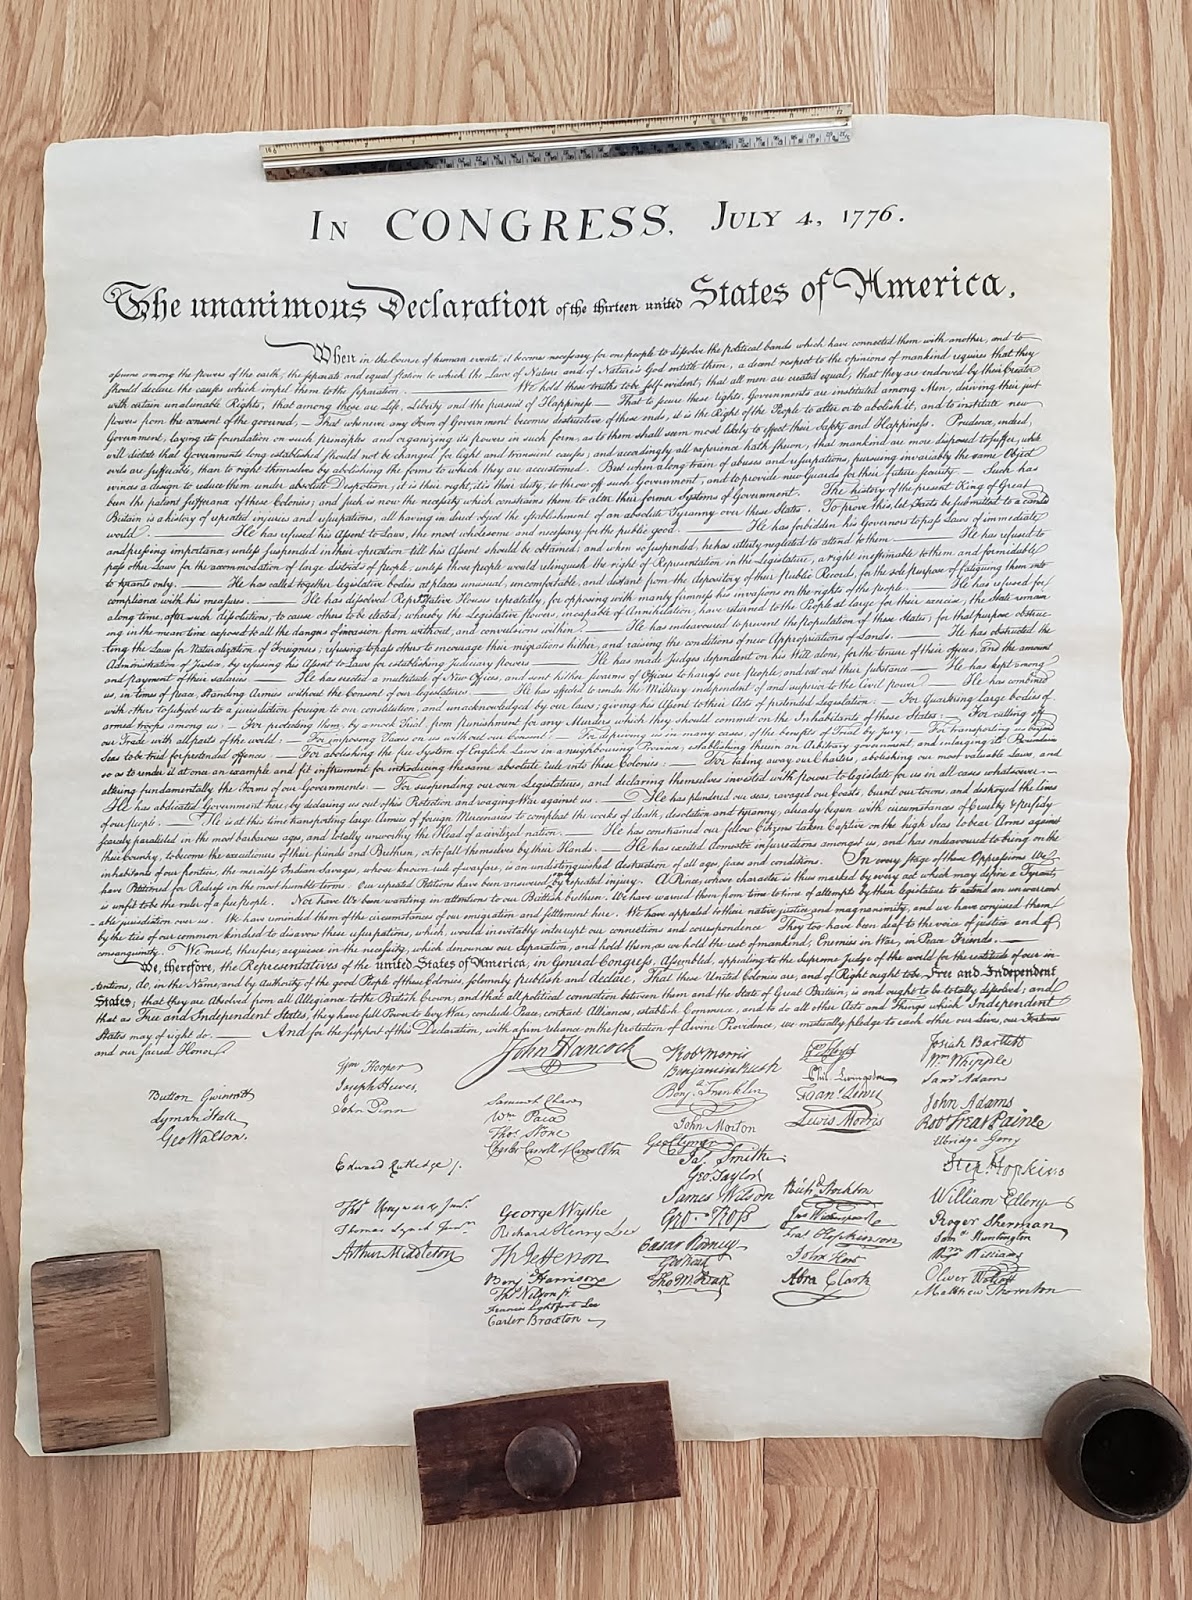 IN CONGRESS, JULY 4, 1776.
The unanimous Declaration of the thirteen united States of America,
When in the Course of human events, it becomes necessary for one people to dissolve the political bands which have connected them with another, and to
assume among the powers of the earth, the separate and equal station to which the Laws of Nature and of Nature's God entitle them, a decent respect to the opinions of mankind requires that they
should declare the causes which impel them to the separation. — We hold these truths to be self-evident, that all men are created equal, that they are endowed by their Creator
with certain unalienable Rights, that among these are Life, Liberty and the pursuit of Happiness.— That to secure these rights, Governments are instituted among Men, deriving their just
powers from the consent of the governed, — That whenever any Form of Government becomes destructive of these ends, it is the Right of the People to alter or to abolish it, and to institute new
Government, laying its foundation on such principles and organizing its powers in such form, as to them shall seem most likely to effect their Safety and Happiness. Prudence, indeed,
will dictate that Governments long established should not be changed for light and transient causes; and accordingly all experience hath shewn, that mankind are more disposed to suffer, while
evils are sufferable, than to right themselves by abolishing the forms to which they are accustomed. But when a long train of abuses and usurpations, pursuing invariably the same Object
evinces a design to reduce them under absolute Despotism, it is their right, it is their duty, to throw off such Government, and to provide new Guards for their future security. — Such has
been the patient sufferance of these Colonies; and such is now the necessity which constrains them to alter their former Systems of Government. The history of the present King of Great
Britain is a history of repeated injuries and usurpations, all having in direct object the establishment of an absolute Tyranny over these States. To prove this, let Facts be submitted to a candid
world. — He has refused his Assent to Laws, the most wholesome and necessary for the public good. — He has forbidden his Governors to pass Laws of immediate
and pressing importance, unless suspended in their operation till his Assent should be obtained; and when so suspended, he has utterly neglected to attend to them. — He has refused to
pass other Laws for the accommodation of large districts of people, unless those people would relinquish the right of Representation in the Legislature, a right inestimable to them and formidable
to tyrants only. — He has called together legislative bodies at places unusual, uncomfortable, and distant from the depository of their Public Records, for the sole purpose of fatiguing them into
compliance with his measures. — He has dissolved Representative Houses repeatedly, for opposing with manly firmness his invasions on the rights of the people. — He has refused for
a long time, after such dissolutions, to cause others to be elected; whereby the Legislative powers, incapable of Annihilation, have returned to the People at large for their exercise; the State remain
ing in the mean time exposed to all the dangers of invasion from without, and convulsions within. — He has endeavoured to prevent the population of these States; for that purpose obstruc
ting the Laws for Naturalization of Foreigners; refusing to pass others to encourage their migrations hither, and raising the conditions of new Appropriations of Lands. — He has obstructed the
Administration of Justice, by refusing his Assent to Laws for establishing Judiciary powers — He has made Judges dependent on his Will alone, for the tenure of their offices, and the amount
and payment of their salaries — He has erected a multitude of New Offices, and sent hither swarms of Officers to harrass our people, and eat out their substance — He has kept among
us, in times of peace, Standing Armies without the Consent of our legislatures. — He has affected to render the Military independent of and superior to the Civil power — He has combined
with others to subject us to a jurisdiction foreign to our constitution, and unacknowledged by our laws; giving his Assent to their Acts of pretended Legislation: — For Quartering large bodies of
armed troops among us: — For protecting them, by a mock Trial, from punishment for any Murders which they should commit on the Inhabitants of these States: — For cutting off
our Trade with all parts of the world: — For imposing Taxes on us without our Consent: — For depriving us in many cases, of the benefits of Trial by Jury: — For transporting us beyond
Seas to be tried for pretended offences — For abolishing the free System of English Laws in a neighbouring Province, establishing therein an Arbitrary government, and enlarging its Boundaries
so as to render it at once an example and fit instrument for introducing the same absolute rule into these Colonies: — For taking away our Charters, abolishing our most valuable Laws, and
altering fundamentally the Forms of our Governments: — For suspending our own Legislatures, and declaring themselves invested with power to legislate for us in all cases whatsoever. —
He has abdicated Government here, by declaring us out of his Protection and waging War against us. — He has plundered our seas, ravaged our Coasts, burnt our towns, and destroyed the lives
of our people. — He is at this time transporting large Armies of foreign Mercenaries to compleat the works of death, desolation and tyranny, already begun with circumstances of Cruelty & perfidy
scarcely paralleled in the most barbarous ages, and totally unworthy the Head of a civilized nation. — He has constrained our fellow Citizens taken Captive on the high Seas to bear Arms against
their Country, to become the executioners of their friends and Brethren, or to fall themselves by their Hands. — He has excited domestic insurrections amongst us, and has endeavoured to bring on the
inhabitants of our frontiers, the merciless Indian Savages, whose known rule of warfare, is an undistinguished destruction of all ages, sexes and conditions. In every stage of these Oppressions We
have Petitioned for Redress in the most humble terms: Our repeated Petitions have been answered only by repeated injury. A Prince, whose character is thus marked by every act which may define a Tyrant,
is unfit to be the ruler of a free people. Nor have We been wanting in attentions to our Brittish brethren. We have warned them from time to time of attempts by their legislature to extend an unwarrant
able jurisdiction over us. We have reminded them of the circumstances of our emigration and settlement here. We have appealed to their native justice and magnanimity, and we have conjured them
by the ties of our common kindred to disavow these usurpations, which, would inevitably interrupt our connections and correspondence They too have been deaf to the voice of justice and of
consanguinity. We must, therefore, acquiesce in the necessity, which denounces our Separation, and hold them, as we hold the rest of mankind, Enemies in War, in Peace Friends. —
We, therefore, the Representatives of the united States of America, in General Congress, Assembled, appealing to the Supreme Judge of the world for the rectitude of our in-
tentions, do, in the Name, and by Authority of the good People of these Colonies, solemnly publish and declare, That these United Colonies are, and of Right ought to be Free and Independent
States; that they are Absolved from all Allegiance to the British Crown, and that all political connection between them and the State of Great Britain, is and ought to be totally dissolved; and
that as Free and Independent States, they have full Power to levy War, conclude Peace, contract Alliances, establish Commerce, and to do all other Acts and Things which Independent
States may right do. — And for the support of this Declaration, with a firm reliance on the protection of divine Providence, we mutually pledge to each other our Lives, our Fortunes
and our sacred Honor.
Button Gwinnett
Lyman Hall
Geo Walton.
Wm Hooper
Joseph Hewes,
John Penn
Edward Rutledge /.
Thos Heyward Junr.
Thomas Lynch Junr.
Arthur Middleton
John Hancock
Samuel Chase
Wm Paca
Thos. Stone
Charles Carroll of Carrollton
George Wythe
Richard Henry Lee
Th Jefferson
Benj Harrison
Thos Nelson jr.
Francis Lightfoot Lee
Carter Braxton
Robt Morris
Benjamin Rush
Benj. Franklin
John Morton
Geo Clymer
Jas. Smith.
Geo. Taylor
James Wilson
Geo. Ross
Caesar Rodney
Geo Read
Tho M:Kean
Wm Floyd
Phil. Livingston
Frans. Lewis
Lewis Morris
Richd. Stockton
Jno Witherspoon
Fras. Hopkinson
John Hart
Abra Clark
Josiah Bartlett
Wm: Whipple
Saml Adams
John Adams
Robt Treat Paine
Elbridge Gerry
Step. Hopkins
William Ellery
Roger Sherman
Saml Huntington
Wm Williams
Oliver Wolcott
Matthew Thornton